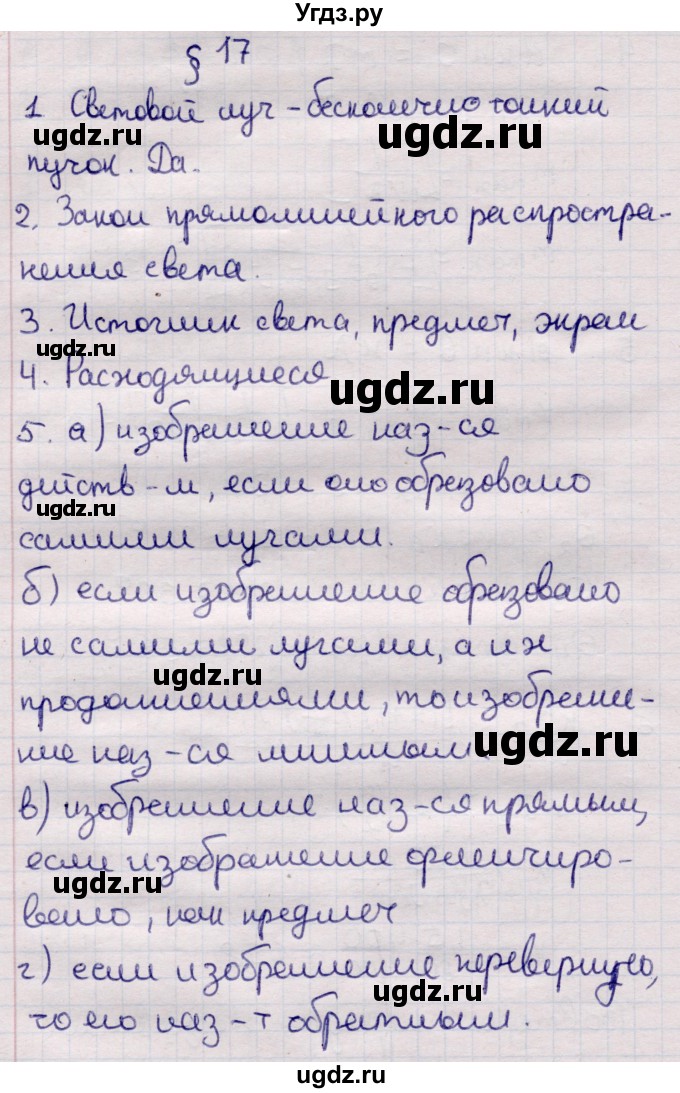 Угдз.ру
§ 17
1 Световой луч - бесконечно тонкий
ugdz.ru ugdz.ru
пучок. Да.
2. Закон прямолинейного распростра-
нения света.
3. Источник света, предмет, экран
ugdz.ru
4. Расходящиеся
ugdz.ru
5. а) изображение наз-ся
действ-м, если оно образовано
ugdz.ru
самими лучами.
б) если изображение образовано
ugdz.ru
не самими лучами, а их
ugdz.ru
продолжениями, то изображе-
ние наз-ся мнимым
ugdz.ru
в) изображение наз-ся прямым,
если изображение ориентиро-
ugdz.ru
вано, как предмет
г) если изображение перевернуто,
ugdz.ru
то его наз-т обратным.
ugdz.ru